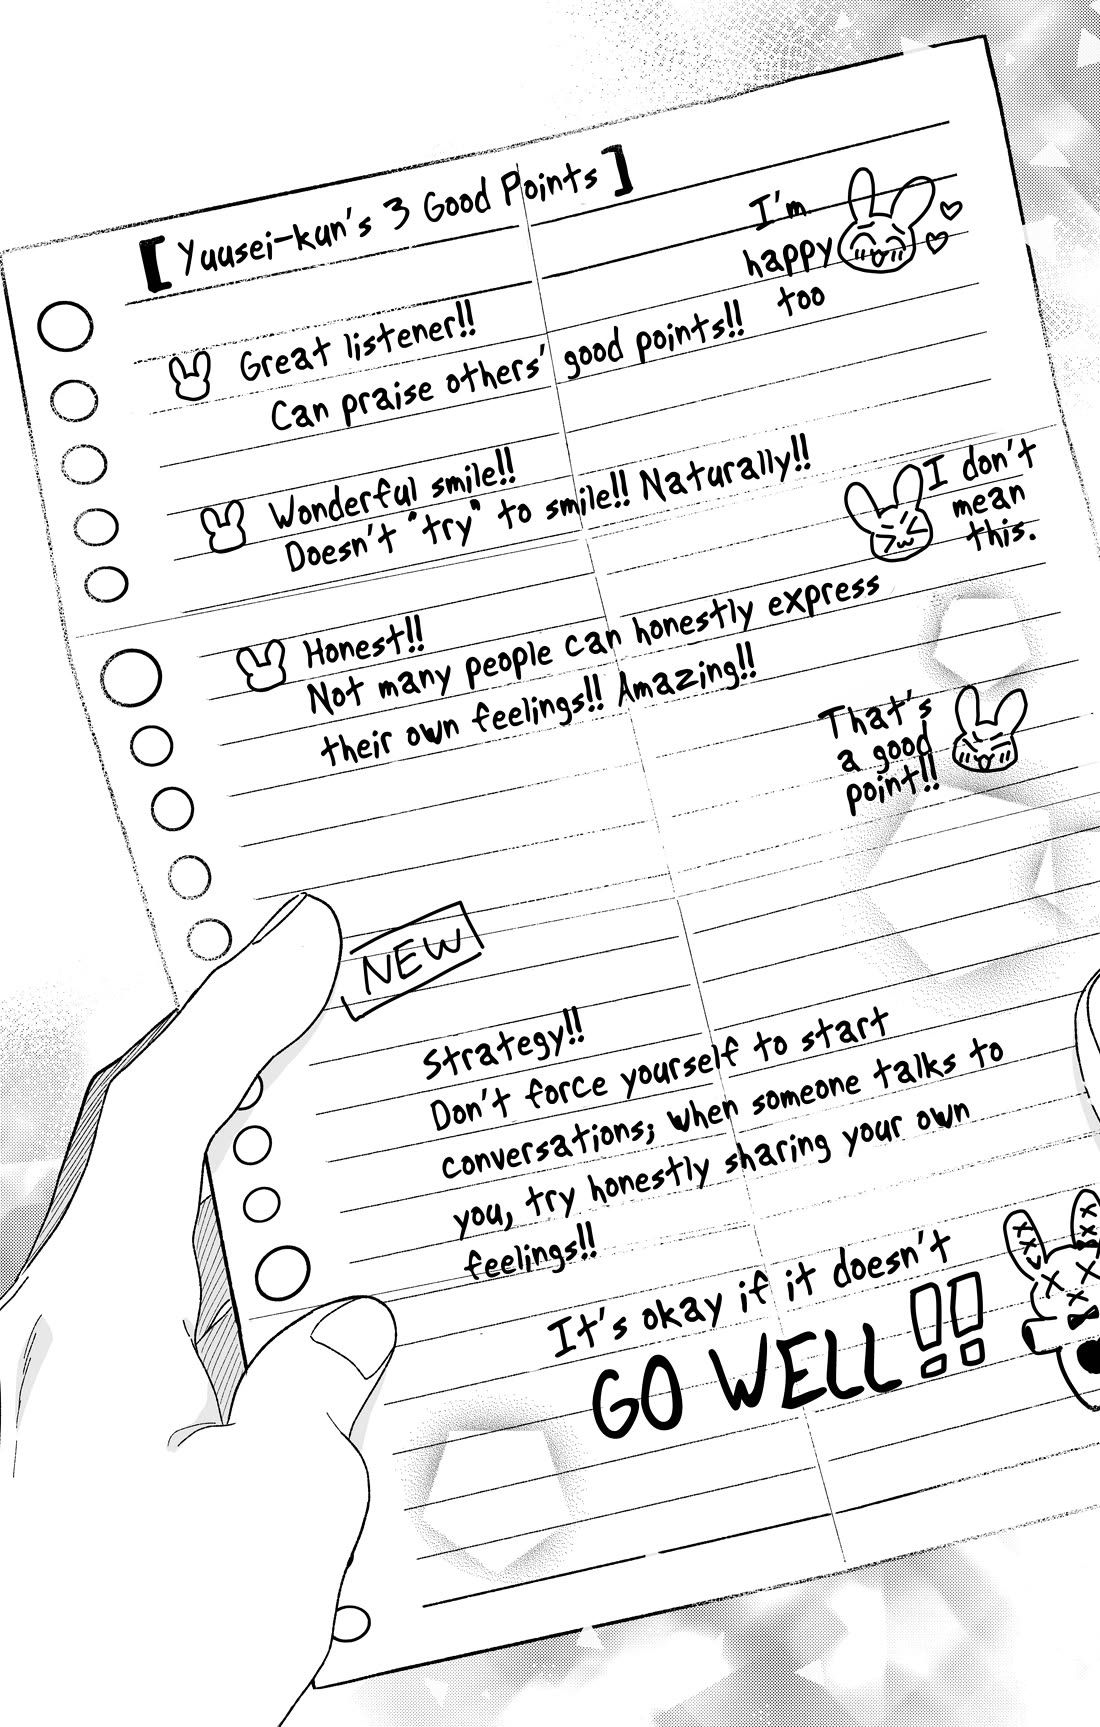 [Yuusei-kun's 3 Good Points]
I'm
happy
too
Great listener!!
Can praise others' good points!!
Wonderful smile!!
Doesn't "try" to smile!! Naturally!!
I don't
mean
this.
Honest!!
Not many people can honestly express
their own feelings!! Amazing!!
That's
a good
point!!
NEW
Strategy!!
Don't force yourself to start
conversations; when someone talks to
you, try honestly sharing your own
feelings!!
It's okay if it doesn't
GO WELL!!